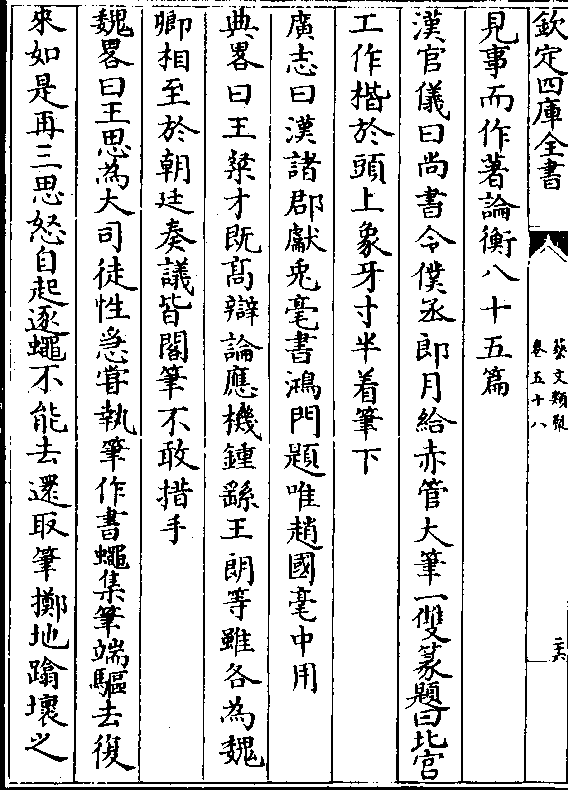 欽定四庫全書
藝文類聚
卷五十八
二六
見事而作著論衡八十五篇
漢官儀曰尚書令僕丞郎月給赤管大筆一雙篆題曰北宫
工作楷於頭上象牙寸半着筆下
廣志曰漢諸郡獻兎毫書鴻門題唯趙國毫中用
典畧曰王粲才既髙辯論應機鍾繇王朗等雖各為魏
卿相至於朝廷奏議皆閣筆不敢措手
魏畧曰王思為大司徒性急甞執筆作書蠅集筆端驅去復
來如是再三思怒自起逐蠅不能去還取筆擲地蹋壞之